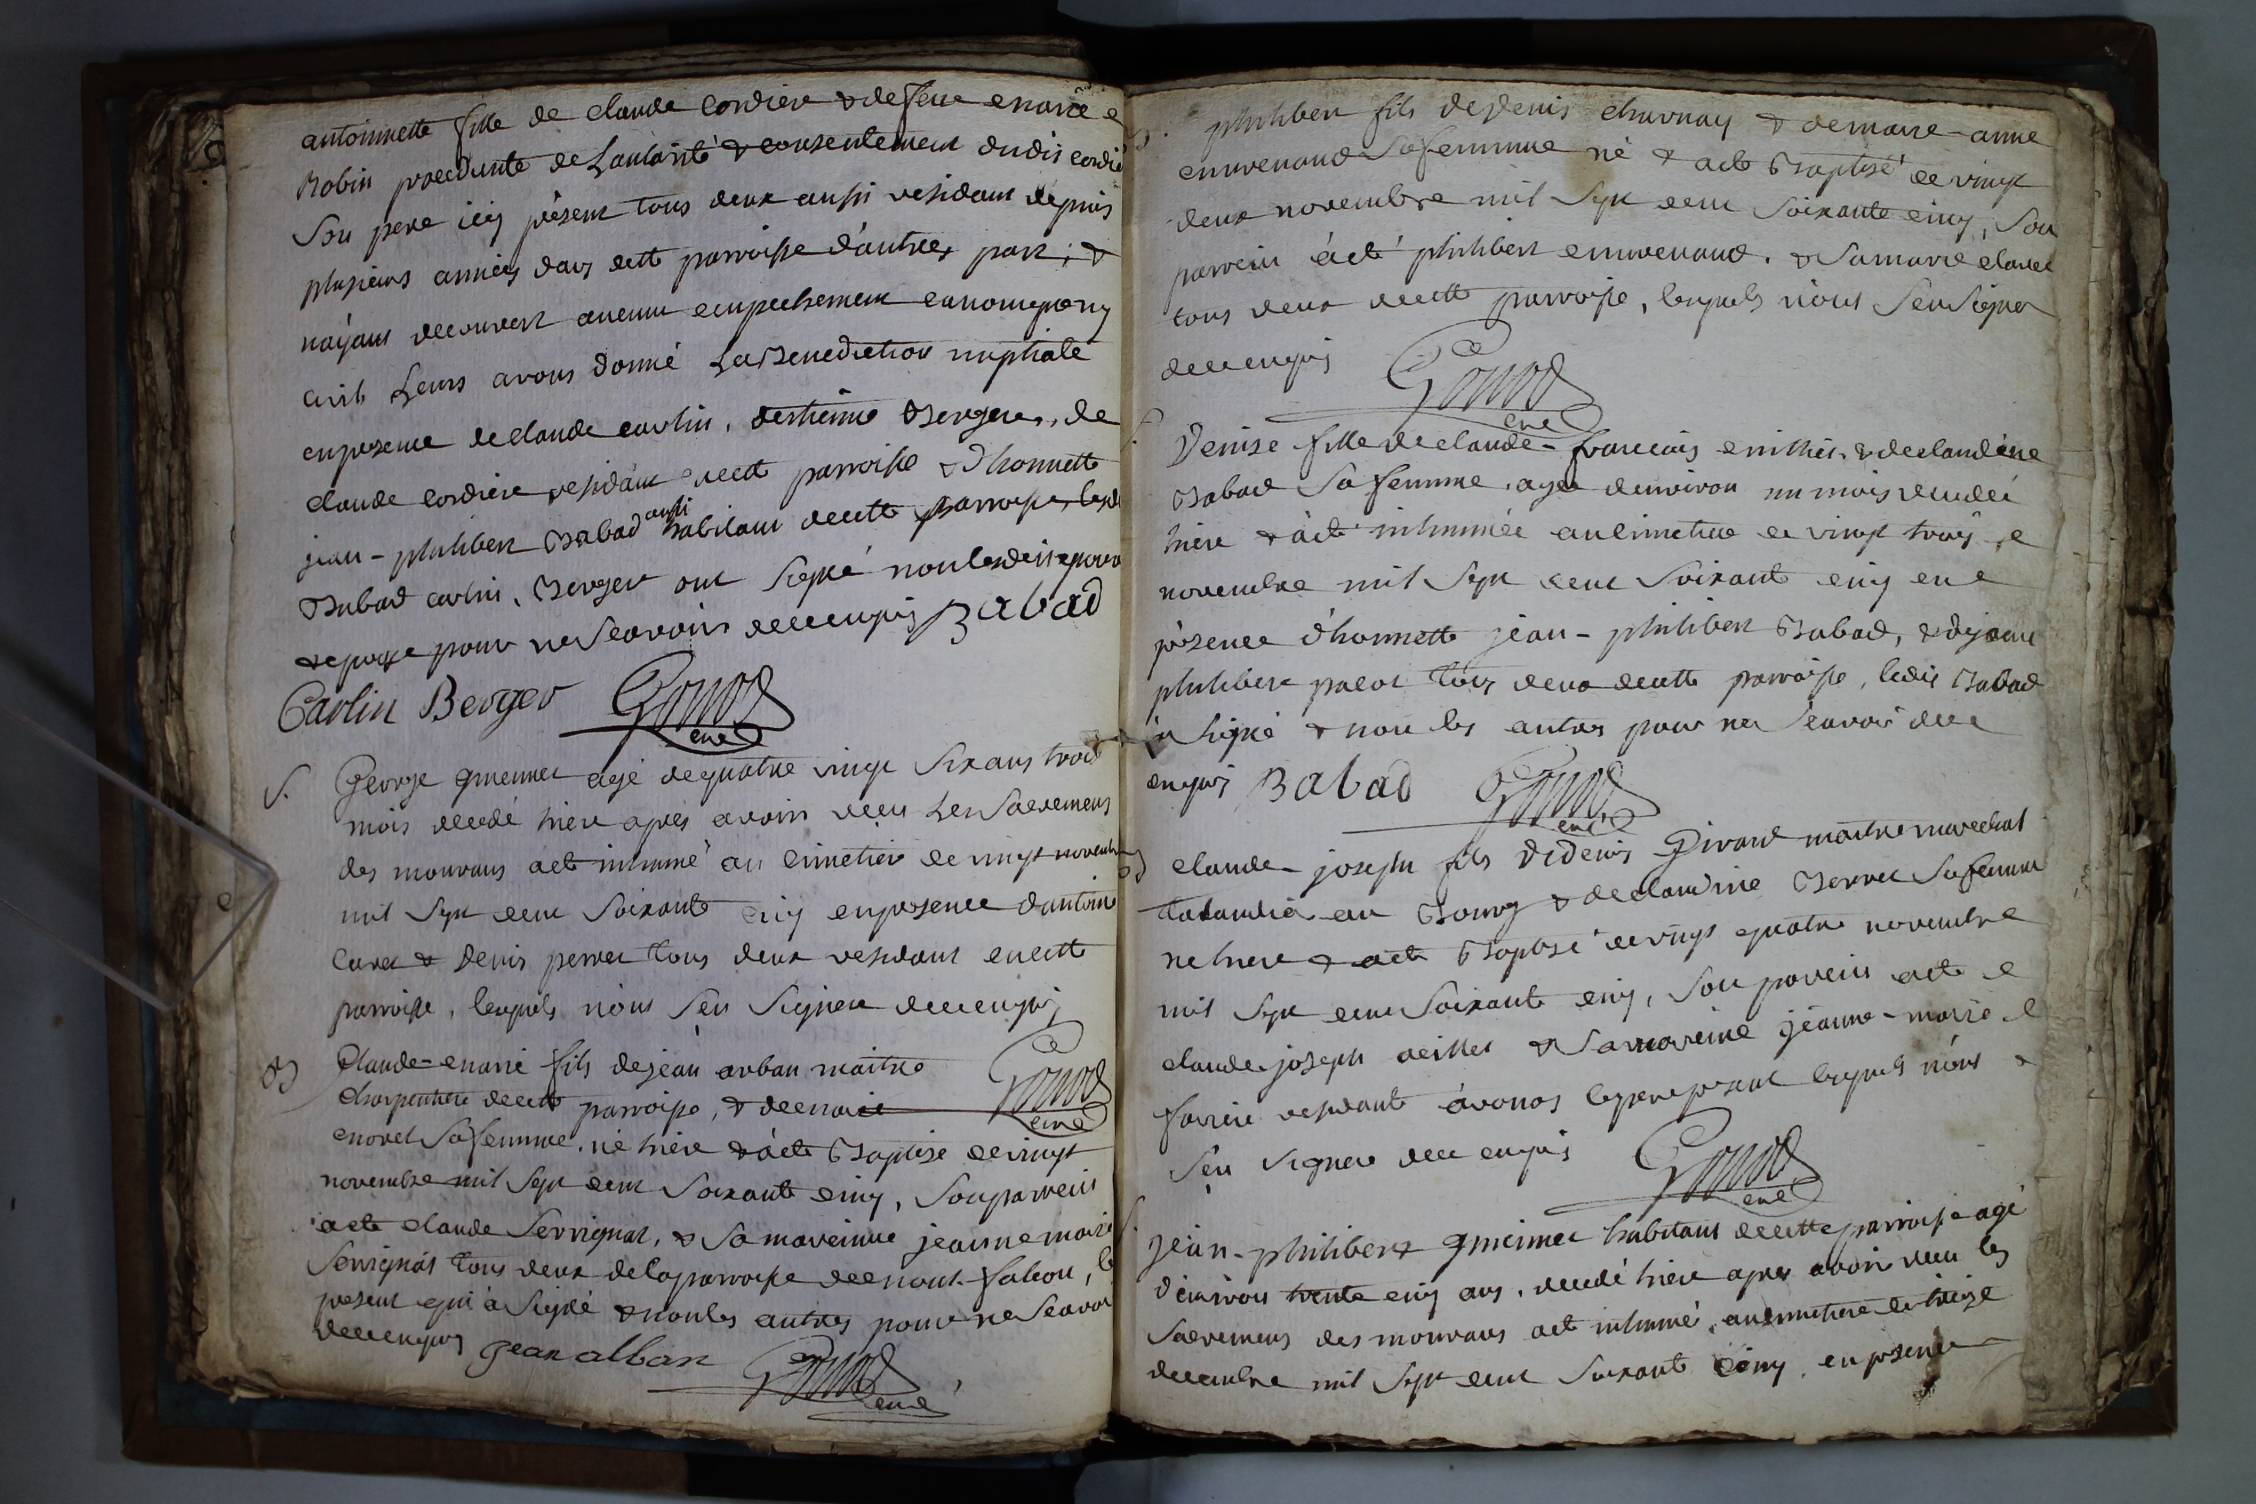 antoinnette fille de claude cordiere & de feue marie
Robin procedante de Lautorité & consentement dudit cordie
Son pere icy présent tous deux aussi residant depuis
plusieurs années dans cette parroisse d'autres part, &
nayant decouvert aucun empechement canonique ny
civil Leurs avons donné La Benediction nuptiale
en presence de claude carlin, destienne Berger, de
claude cordiere residant cette parroisse & d'honnette
jean-philibert Babad aussi habitant decette parroisse, lesd
Babad carlin, Berger ont signé non lesdits epoux
& epouse pour ne Scavoir de ce enquis Babad
Carlin Berger Gonod
curé
S. George guennet agé de quatre vingt Six ans trois
mois decedé hière aprés avoir reçu Les Sacremens
des mourans a eté inhumé au cimetier ce vingt novemb
mil Sept cent Soixante cinq en presence dantoine
& Denis perret tous deux residant en cette
parroisse, lesquels n'ont Sçu Signer de ce enquis
B Claude-marie fils de jean arban maitre Gonod
charpentiere de cette parroisse, & de marie curé
morel Sa femme, né hière & a eté Baptisé ce vingt
novembre mil Sept cent Soixante cinq, Son parrein
a eté claude Serrignat, & Sa mareinne jeanne marie
Serrignat tous deux de la parroisse de falcon, le
present qui a Signé & non les autres pour ne Scavoir
de ce enquis jean alban Gonod
curé
B. philibert fils de denis charnay & de marie-anne
Sa femme né & a eté Baptisé ce vingt
deux novembre mil Sept cent Soixante cinq, Son
parrein a eté philibert & Sa marre
tous deux de cette parroisse, lesquels n'ont Sçu Signer
de ce enquis Gonod
curé
S. Denise fille de claude-francois & de claudène
Babad Sa femme, agée denviron un mois decedée
hière & a eté inhumée au cimetiere ce vingt trois
novembre mil Sept cent Soixante cinq en
présence d'honnette jean-philibert Babad, &
philibert tous deux de cette parroisse, ledit Babad
a Signé & non les autres pour ne Scavoir de ce
enquis Babad Gonod
curé
B claude-joseph fils de denis Girard maitre marechal
taladié au Bourg & de claudine Sa femme
né hière & a eté Baptisé ce vingt quatre novembre
mil Sept cent Soixante cinq, Son parrein a eté
claude joseph & Sa mareine jeanne-marie
residante avonas le pere présent lesquels n'ont
Sçu Signer de ce enquis Gonod
curé
S. jean-philibert guennet habitant de cette parroisse agé
d'environ trente cinq ans, decedé hière apres avoir reçu les
Sacremens des mourans a eté inhumé, au cimetiere le treize
decembre mil Sept cent Soixante cinq, en présence